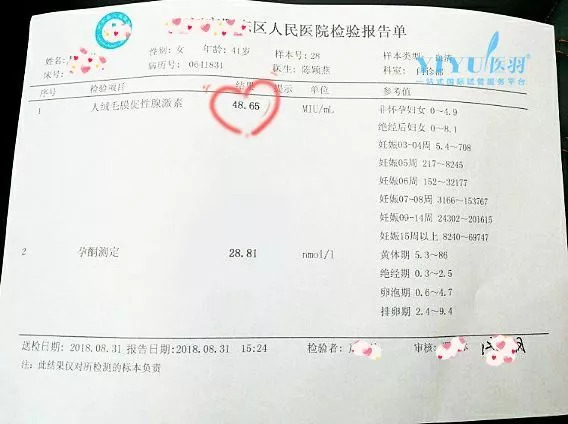 区人民医院检验报告单
姓名: 性别: 女 年龄: 41岁 样本号: 28 样本类型:
床号: 病历号: 0641831 医生: 陈颖燕 科室:
YIYU医羽
一站式国际试管服务平台
序号 检验项目 结果 提示 单位 参考值
1 人绒毛膜促性腺激素 48.65 MIU/mL 非怀孕妇女 0~4.9
绝经后妇女 0~8.1
妊娠03-04周 5.4~708
妊娠05周 217~8245
妊娠06周 152~32177
妊娠07-08周 3166~153767
妊娠09-14周 24302~201615
妊娠15周以上 8240~69747
2 孕酮测定 28.81 nmol/l 黄体期 5.3~86
绝经期 0.3~2.5
卵泡期 0.6~4.7
排卵期 2.4~9.4
送检日期: 2018.08.31 报告日期:2018.08.31 15:24 检验者: 审核:
注: 此结果仅对所检测的标本负责